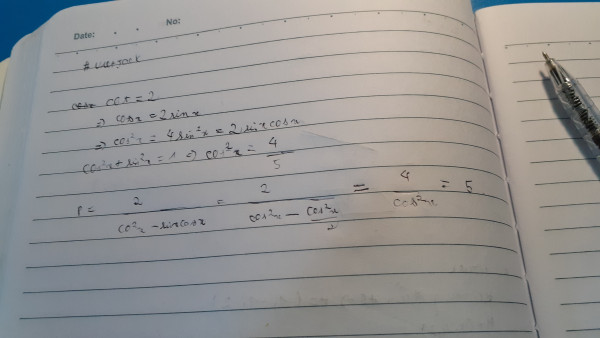 Date: . . No:
cot = 2
⇒ cosx = 2sinx
⇒ cos²x = 4sin²x = 2.sinxcosx
cos²x + sin²x = 1 ⇒ cos²x = 4/5
P = 2/(cos²x - sinxcosx) = 2/(cos²x - cos²x/2) = 4/cos²x = 5